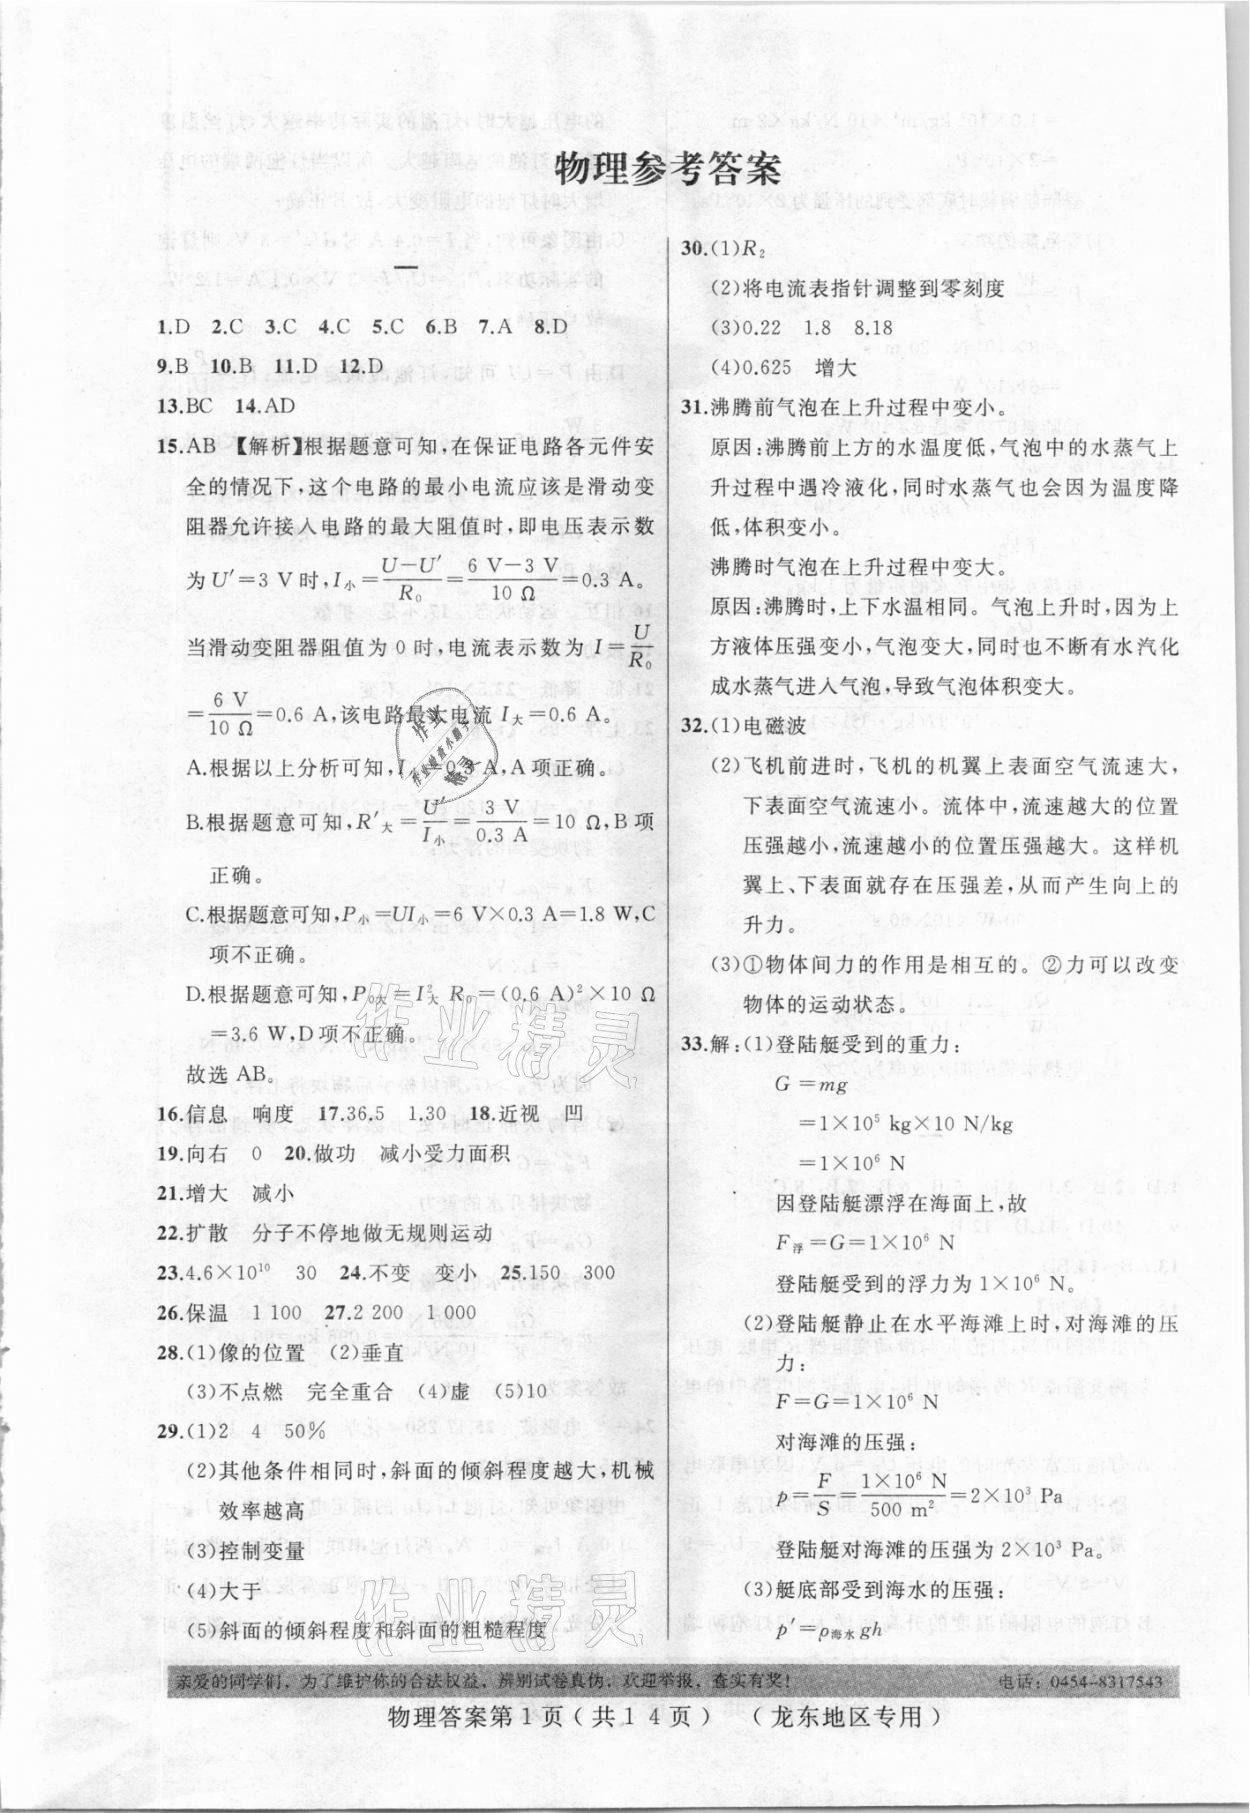 物理参考答案
一
1.D 2.C 3.C 4.C 5.C 6.B 7.A 8.D
9.B 10.B 11.D 12.D
13.BC 14.AD
15.AB 【解析】根据题意可知,在保证电路各元件安
全的情况下,这个电路的最小电流应该是滑动变
阻器允许接入电路的最大阻值时,即电压表示数
为U′=3 V时,I小=(U−U′)/R₀=(6 V−3 V)/(10 Ω)=0.3 A。
当滑动变阻器阻值为0时,电流表示数为I=U/R₀
=6 V/10 Ω=0.6 A,该电路最大电流I大=0.6 A。
A.根据以上分析可知,I小=0.3 A,A项正确。
B.根据题意可知,R′大=U′/I小=3 V/0.3 A=10 Ω,B项
正确。
C.根据题意可知,P小=UI小=6 V×0.3 A=1.8 W,C
项不正确。
D.根据题意可知,P0大=I²大 R₀=(0.6 A)²×10 Ω
=3.6 W,D项不正确。
故选AB。
16.信息 响度 17.36.5 1.30 18.近视 凹
19.向右 0 20.做功 减小受力面积
21.增大 减小
22.扩散 分子不停地做无规则运动
23.4.6×10¹⁰ 30 24.不变 变小 25.150 300
26.保温 1 100 27.2 200 1 000
28.(1)像的位置 (2)垂直
(3)不点燃 完全重合 (4)虚 (5)10
29.(1)2 4 50%
(2)其他条件相同时,斜面的倾斜程度越大,机械
效率越高
(3)控制变量
(4)大于
(5)斜面的倾斜程度和斜面的粗糙程度
30.(1)R₂
(2)将电流表指针调整到零刻度
(3)0.22 1.8 8.18
(4)0.625 增大
31.沸腾前气泡在上升过程中变小。
原因:沸腾前上方的水温度低,气泡中的水蒸气上
升过程中遇冷液化,同时水蒸气也会因为温度降
低,体积变小。
沸腾时气泡在上升过程中变大。
原因:沸腾时,上下水温相同。气泡上升时,因为上
方液体压强变小,气泡变大,同时也不断有水汽化
成水蒸气进入气泡,导致气泡体积变大。
32.(1)电磁波
(2)飞机前进时,飞机的机翼上表面空气流速大,
下表面空气流速小。流体中,流速越大的位置
压强越小,流速越小的位置压强越大。这样机
翼上、下表面就存在压强差,从而产生向上的
升力。
(3)①物体间力的作用是相互的。②力可以改变
物体的运动状态。
33.解:(1)登陆艇受到的重力:
G=mg
=1×10⁵ kg×10 N/kg
=1×10⁶ N
因登陆艇漂浮在海面上,故
F浮=G=1×10⁶ N
登陆艇受到的浮力为1×10⁶ N。
(2)登陆艇静止在水平海滩上时,对海滩的压
力:
F=G=1×10⁶ N
对海滩的压强:
p=F/S=1×10⁶ N/500 m²=2×10³ Pa
登陆艇对海滩的压强为2×10³ Pa。
(3)艇底部受到海水的压强:
p′=ρ海水gh
作业精灵
作业精灵
亲爱的同学们,为了维护你的合法权益,辨别试卷真伪,欢迎举报,查实有奖! 电话:0454-8317543
物理答案第1页(共14页) (龙东地区专用)